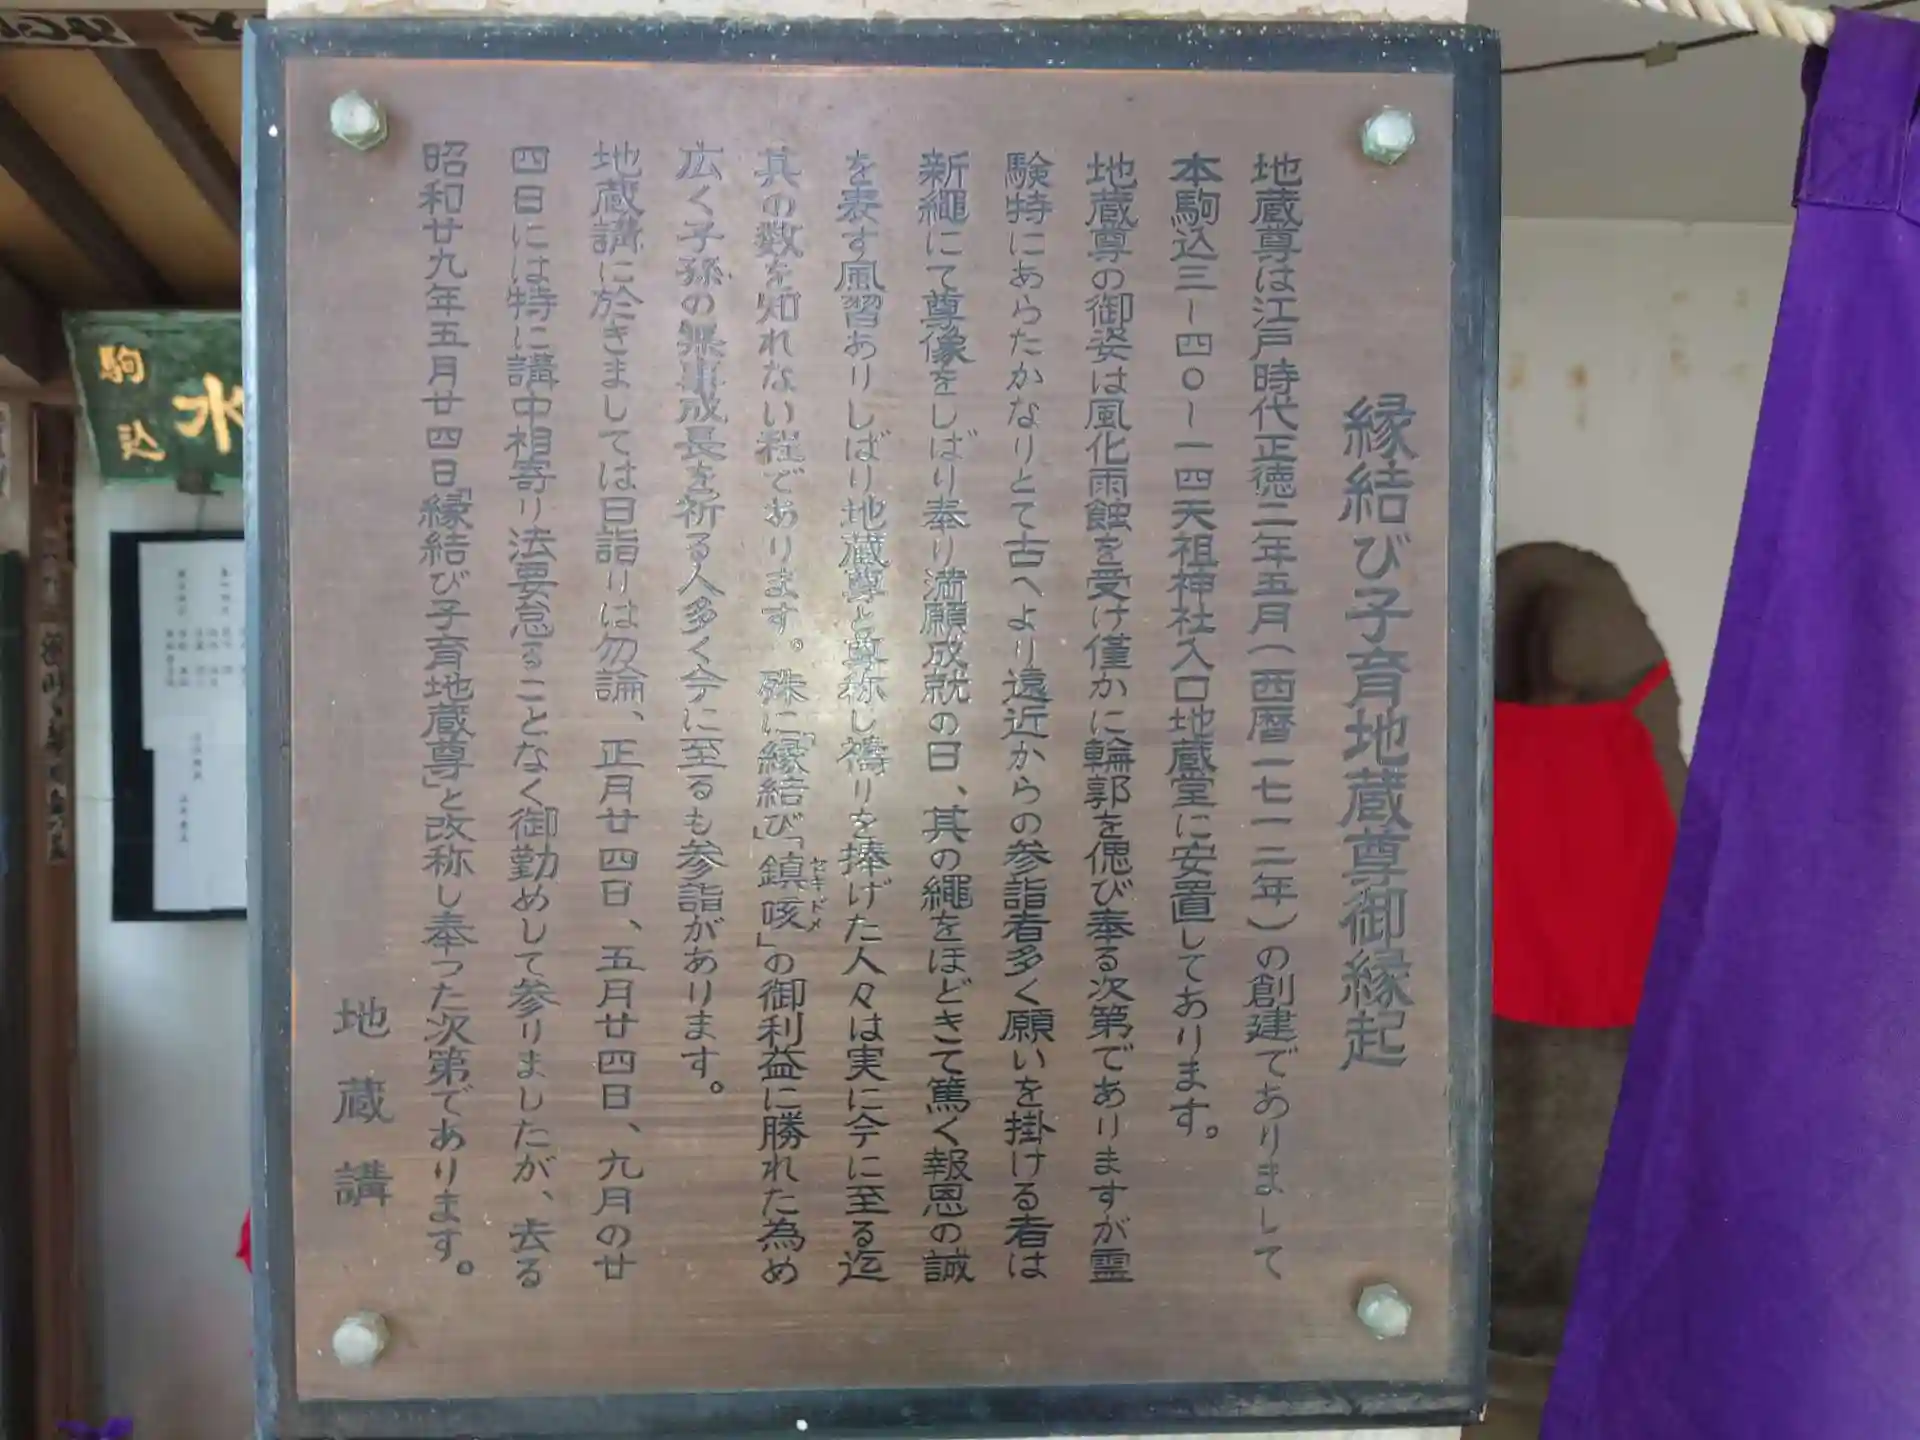 縁結び子育地蔵尊御縁起
地蔵尊は江戸時代正徳二年五月(西暦一七一二年)の創建でありまして
本駒込三ー四〇ー一四天祖神社入口地蔵堂に安置してあります。
地蔵尊の御姿は風化雨蝕を受け僅かに輪郭を偲び奉る次第でありますが霊
験特にあらたかなりとて古へより遠近からの参詣者多く願いを掛ける者は
新繩にて尊像をしばり奉り満願成就の日、其の繩をほどきて篤く報恩の誠
を表す風習ありしばり地蔵尊と尊称し禱りを捧げた人々は実に今に至る迄
其の数を知れない程であります。殊に「縁結び」「鎮咳」の御利益に勝れた為め
セキドメ
広く子孫の無事成長を祈る人多く今に至るも参詣があります。
地蔵講に於きましては日詣りは勿論、正月廿四日、五月廿四日、九月の廿
四日には特に講中相寄り法要怠ることなく御勤めして参りましたが、去る
昭和廿九年五月廿四日「縁結び子育地蔵尊」と改称し奉つた次第であります。
地蔵講
駒込
水